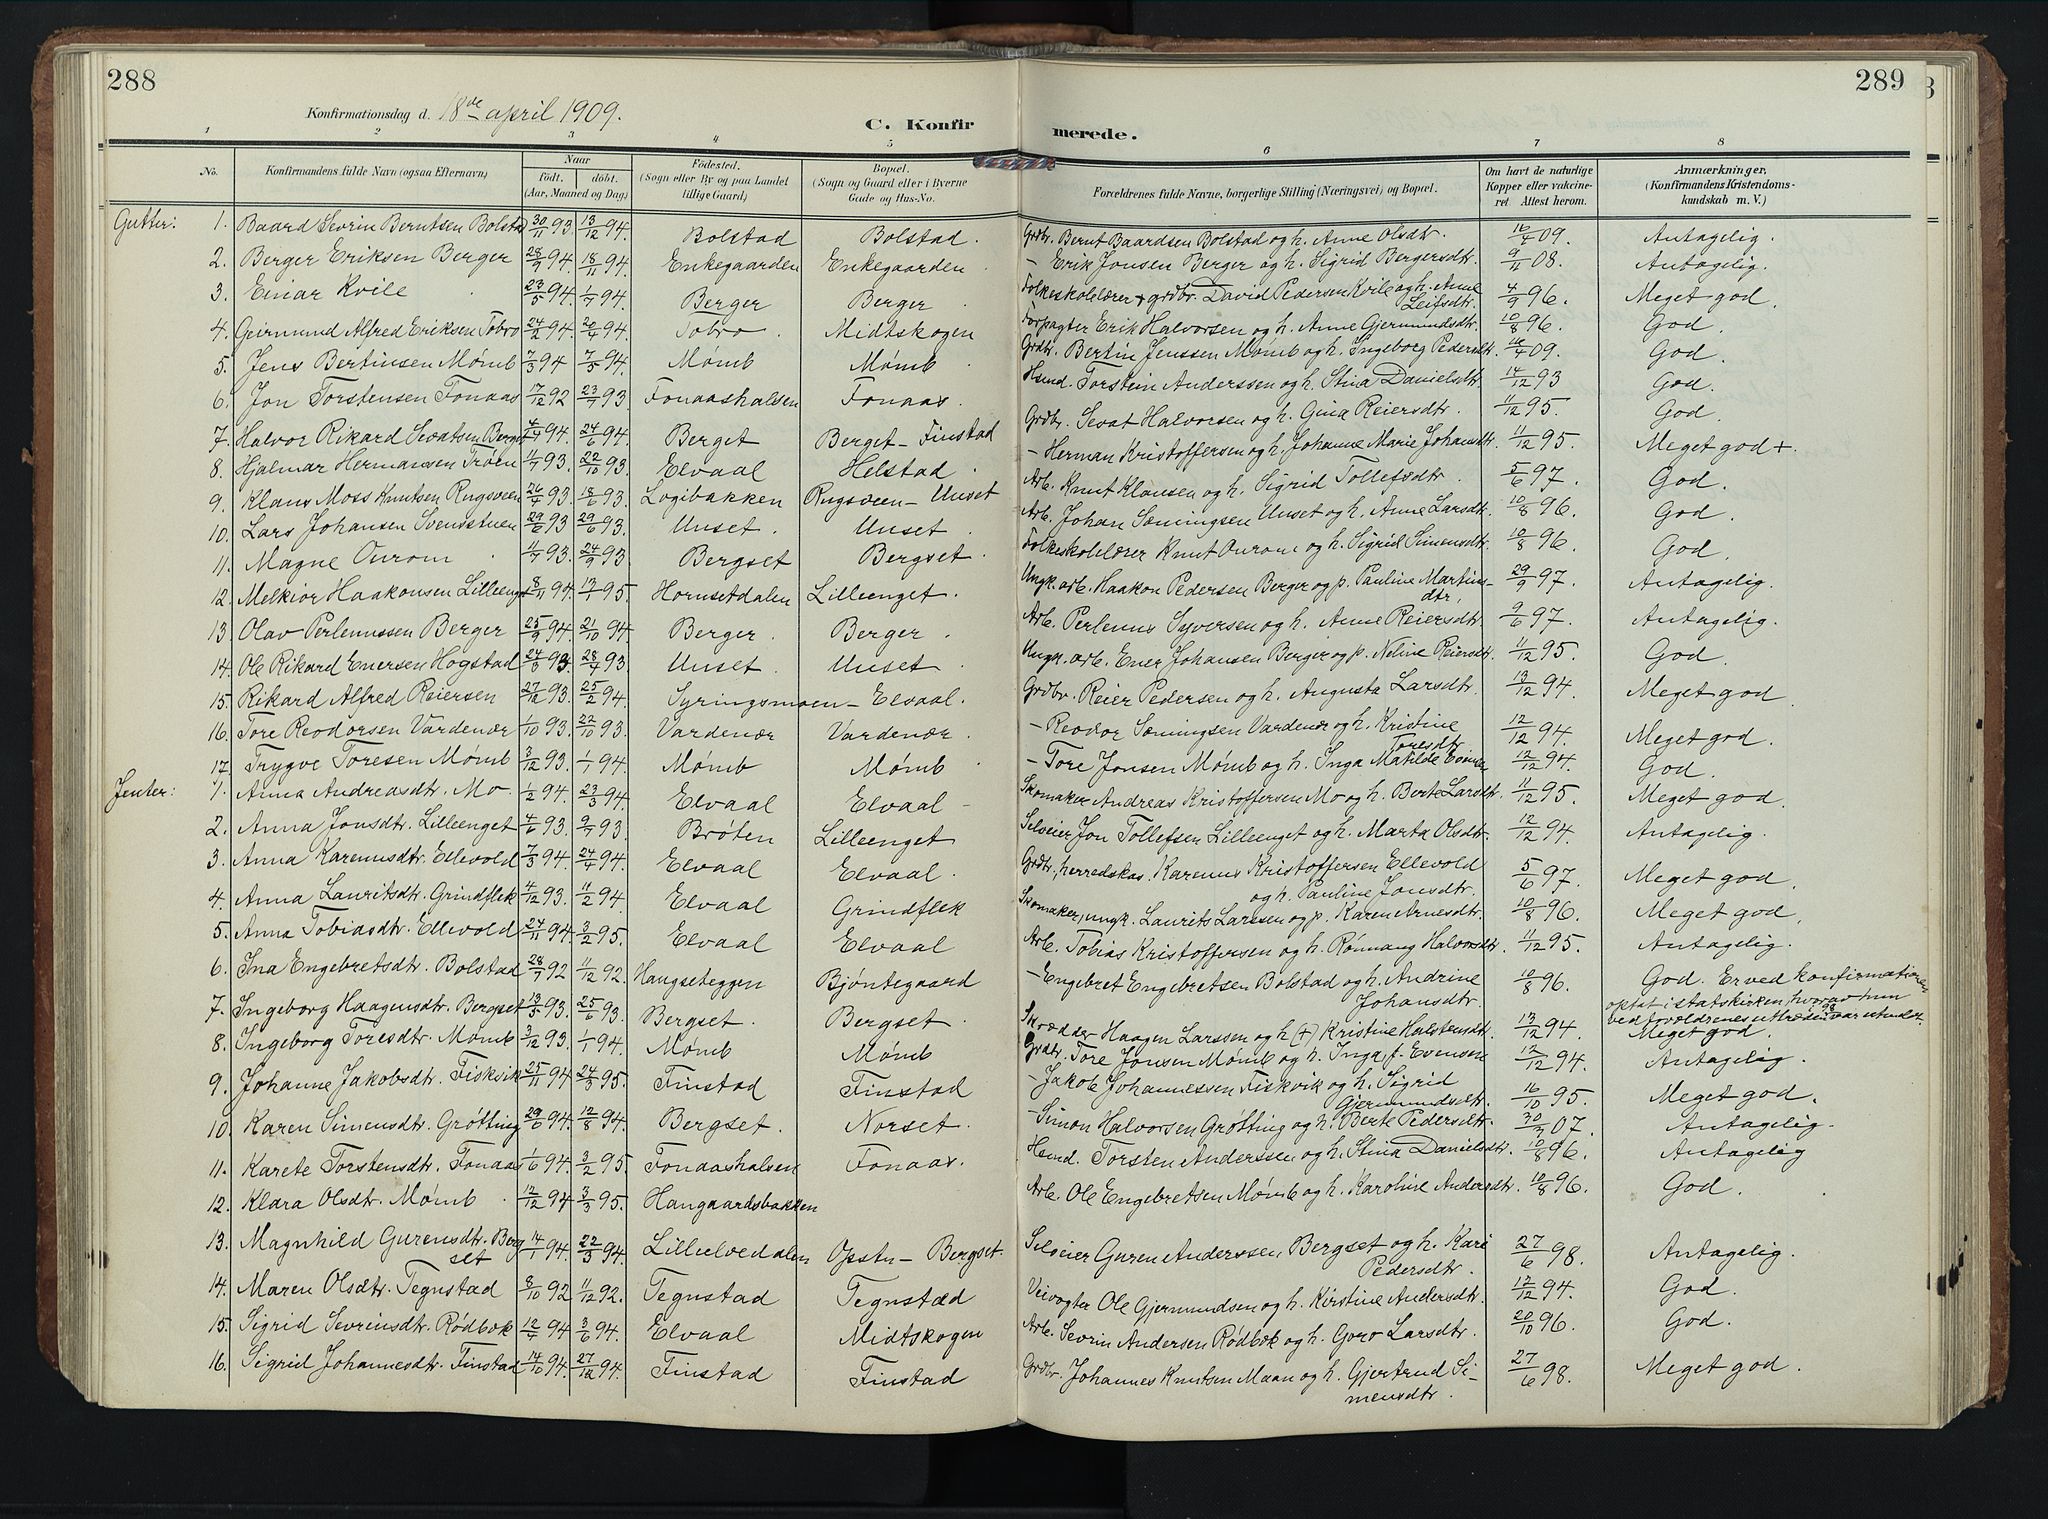 288
289
Konfirmationsdag d. 18de april 1909.
C. Konfirmerede.
1 2 3 4 5 6 7 8
No. Konfirmandens fulde Navn (ogsaa Efternavn) Naar Födt. (Aar, Maaned döbt. og Dag) Födested. (Sogn eller By og paa Landet tillige Gaard) Bopæl. (Sogn og Gaard eller i Byerne Gade og Hus-No. Forældrenes fulde Navne, borgerlige Stilling (Næringsvei) og Bopæl. Om havt de naturlige Kopper eller vakcineret. Attest herom. Anmærkninger. (Konfirmandens Kristendomskundskab m. V.)
Gutter: 1. Baard Sevrin Berntsen Bolstad 30/11 93. 13/12 94. Bolstad Bolstad. Grdbr. Bernt Baardsen Bolstad og h. Anne Olsdtr. 16/4 09. Antagelig.
2. Berger Eriksen Berger 28/9 94. 18/11 94. Enkegaarden Enkegaarden - Erik Jonsen Berger og h. Sigrid Bergersdtr. 9/11 08. Antagelig.
3. Einar Kvile 23/5 94. 1/7 94. Berger Berger Folkeskolelærer + grdbr. David Pedersen Kvile og h. Anne Leifsdtr. 4/9 96. Meget god.
4. Gjermund Alfred Eriksen Tobro 24/2 94. 20/4 94. Tobro. Midtskogen Forpagter Erik Halvorsen og h. Anne Gjermundsdtr. 10/8 96. God.
5. Jens Bertinsen Mømb 7/3 94 7/5 94. Mømb Mømb. Grdbr. Bertin Jenssen Mømb og h. Ingeborg Pedersdtr. 16/4 09. God.
6. Jon Torstensen Fonaas 17/12 92 23/7 93. Fonaashalsen Fonaas. Husmd. Torstein Anderssen og h. Stina Danielsdtr. 14/12 93 God.
7. Halvor Rikard Sevatsen Berget 4/4 94. 24/6 94. Berget Berget - Finstad Grdbr. Sevat Halvorsen og h. Gina Reiersdtr. 11/12 95. God.
8. Hjalmar Hermansen Trøen 11/7 93. 22/10 93. Elvaal Helstad. - Herman Kristoffersen og h. Johanne Marie Johansdtr. 11/12 95. Meget god +.
9. Klaus Moss Knutsen Rugsveen 26/4 93. 18/6 93. Logibakken Rugsveen - Unset Arb. Knut Klausen og h. Sigrid Tollefsdtr. 5/6 97. God.
10. Lars Johansen Svensstuen 29/6 93 29/6 93. Unset. Unset. Arb. Johan Sæmingsen Unset og h. Anne Larsdtr. 10/8 96. God.
11. Magne Ourom 11/7 93. 24/9 93. Bergset Bergset. Folkeskolelærer Knut Ourom og h. Sigrid Simensdtr. 10/8 96. God.
12. Melkior Haakonsen Lilleenget 8/11 94. 13/1 95. Hornsetdalen Lilleenget. Ungk. arb. Haakon Pedersen Berger og p. Pauline Martinsdtr. 29/9 97. Antagelig.
13 Olav Perlenussen Berger 25/9 94. 21/10 94 Berger. Berger. Arb. Perlenus Syversen og h. Anne Reiersdtr. 9/6 97. Antagelig.
14. Ole Rikard Enersen Hogstad 24/3 93. 28/4 93. Unset. Unset. Ungk. arb. Ener Johansen Berger og p. Neline Reiersdtr. 11/12 95. God.
15. Rikard Alfred Reiersen 27/12 93. 25/2 94. Syringsmoen - Elvaal. Grdbr. Reier Pedersen og h. Augusta Larsdtr. 13/12 94. Meget god
16. Tore Reodorsen Vardenær 1/10 93. 22/10 93. Vardenær Vardenær. - Reodor Sæmingsen Vardenær og h. Kristine Toresdtr. 12/12 94. Meget god.
17. Trygve Toresen Mømb 3/12 93. 1/1 94. Mømb Mømb. - Tore Jonsen Mømb og h. Inga Matilde Evensen 12/12 94. God.
Jenter: 1. Anna Andreasdtr. Mo 1/2 94. 23/3 94. Elvaal Elvaal - Skomaker Andreas Kristoffersen Mo og h. Berte Larsdtr. 11/12 95. Meget god.
2. Anna Jonsdtr. Lilleenget 4/6 93. 9/7 93 Brøten Lilleenget Selveier Jon Tollefsen Lilleenget og h. Marta Olsdtr. 12/12 94. Antagelig.
3. Anna Karenusdtr. Ellevold 7/3 94. 24/4 94. Elvaal Elvaal. Grdbr., herredskas. Karenus Kristoffersen Ellevold og h. Pauline Jonsdtr. 5/6 97. Meget god.
4. Anna Lauritsdtr. Grindflek 4/12 93. 11/2 94. Elvaal Grindflek Skomaker, ungk. Laurits Larssen og p. Karen Arnesdtr. 10/8 96. Meget god.
5. Anna Tobiasdtr. Ellevold 24/11 94. 3/2 95. Elvaal Elvaal Arb. Tobias Kristoffersen og h. Rønnaug Halvorsdtr. 11/12 95. Antagelig.
6. Ina Engebretsdtr. Bolstad 28/7 92 11/12 92. Haugseteggen Bjøntegaard - Engebret Engebretsen Bolstad og h. Andrine Johansdtr. 10/8 96. God. Er ved konfirmationen optat i statskirken, hvorav hun ved forældrenes uttræden var utmeldt.
7. Ingeborg Haagensdtr. Bergset 13/5 93. 25/6 93. Bergset. Bergset. Skrædder Haagen Larssen og h. (+) Kristine Halstensdtr. 13/12 94. Meget god.
8. Ingeborg Toresdtr. Mømb 3/12 93. 1/1 94. Mømb Mømb Grdbr. Tore Jonsen Mømb og h. Inga f. Evensen 12/12 94. Antagelig.
9. Johanne Jakobsdtr. Fiskvik 25/11 94 24/3 95. Finstad Finstad - Jakob Johannessen Fiskvik og h. Sigrid Gjermundsdtr. 16/10 95. Meget god.
10. Karen Simensdtr. Grøtting 29/6 94. 12/8 94. Bergset. Norset. - Simon Halvorsen Grøtting og h. Berte Pedersdtr. 30/7 07. Antagelig.
11. Karete Torstensdtr. Fonaas 1/6 94. 3/2 95. Fonaashalsen Fonaas. Husmd. Torsten Anderssen og h. Stina Danielsdtr. 10/8 96. Antagelig
12. Klara Olsdtr. Mømb 12/12 94 3/3 95. Haugaardsbakken Arb. Ole Engebretsen Mømb og h. Karoline Andersdtr. 10/8 96. God.
13. Magnhild Gurensdtr. Bergset 14/1 94. 22/3 94. Lilleelvedalen Opstu - Bergset. Selveier Guren Anderssen Bergset og h. Kari Pedersdtr. 27/6 98. Antagelig.
14. Maren Olsdtr. Tegnstad 8/10 92 11/12 92. Tegnstad Tegnstad Veivogter Ole Gjermundsen og h. Kirstine Andersdtr. 12/12 94. God.
15. Sigrid Sevrinsdtr. Rødbøk 12/4 94 3/6 94. Elvaal Midtskogen Arb. Sevrin Andersen Rødbøk og h. Goro Larsdtr. 20/10 96. God.
16. Sigrid Johannesdtr. Finstad 14/10 94. 27/12 94. Finstad Finstad Grdbr. Johannes Knutsen Maan og h. Gjertrud Simensdtr. 27/6 98. Meget god.